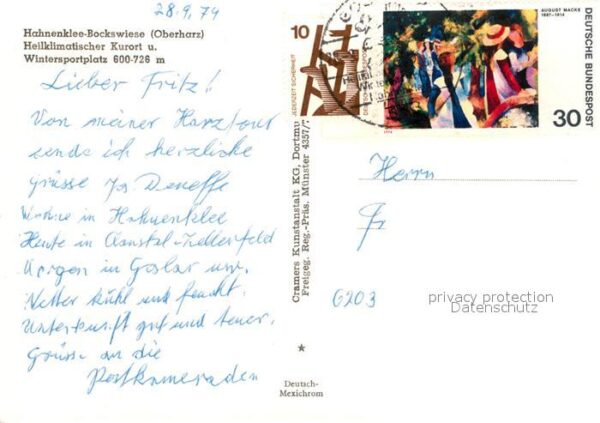 28.9.74
Hahnenklee-Bockswiese (Oberharz)
Heilklimatischer Kurort u.
Wintersportplatz 600-726 m
Lieber Fritz!
Von meiner Harztour
sende ich herzliche
Grüsse
Wohne in Hahnenklee
Heute in Clausthal-Zellerfeld
Morgen in Goslar usw.
Wetter kühl und feucht.
Unterkunft gut und teuer.
Grüsse an die
Postkameraden
Cramers Kunstanstalt KG, Dortmu
Freigeg. Reg.-Präs. Münster 4357/7
Deutsch-
Mexichrom
10
JEDERZEIT SICHERHEIT
AUGUST MACKE
1887-1914
DEUTSCHE BUNDESPOST
30
Herrn
Fr
6203
privacy protection
Datenschutz